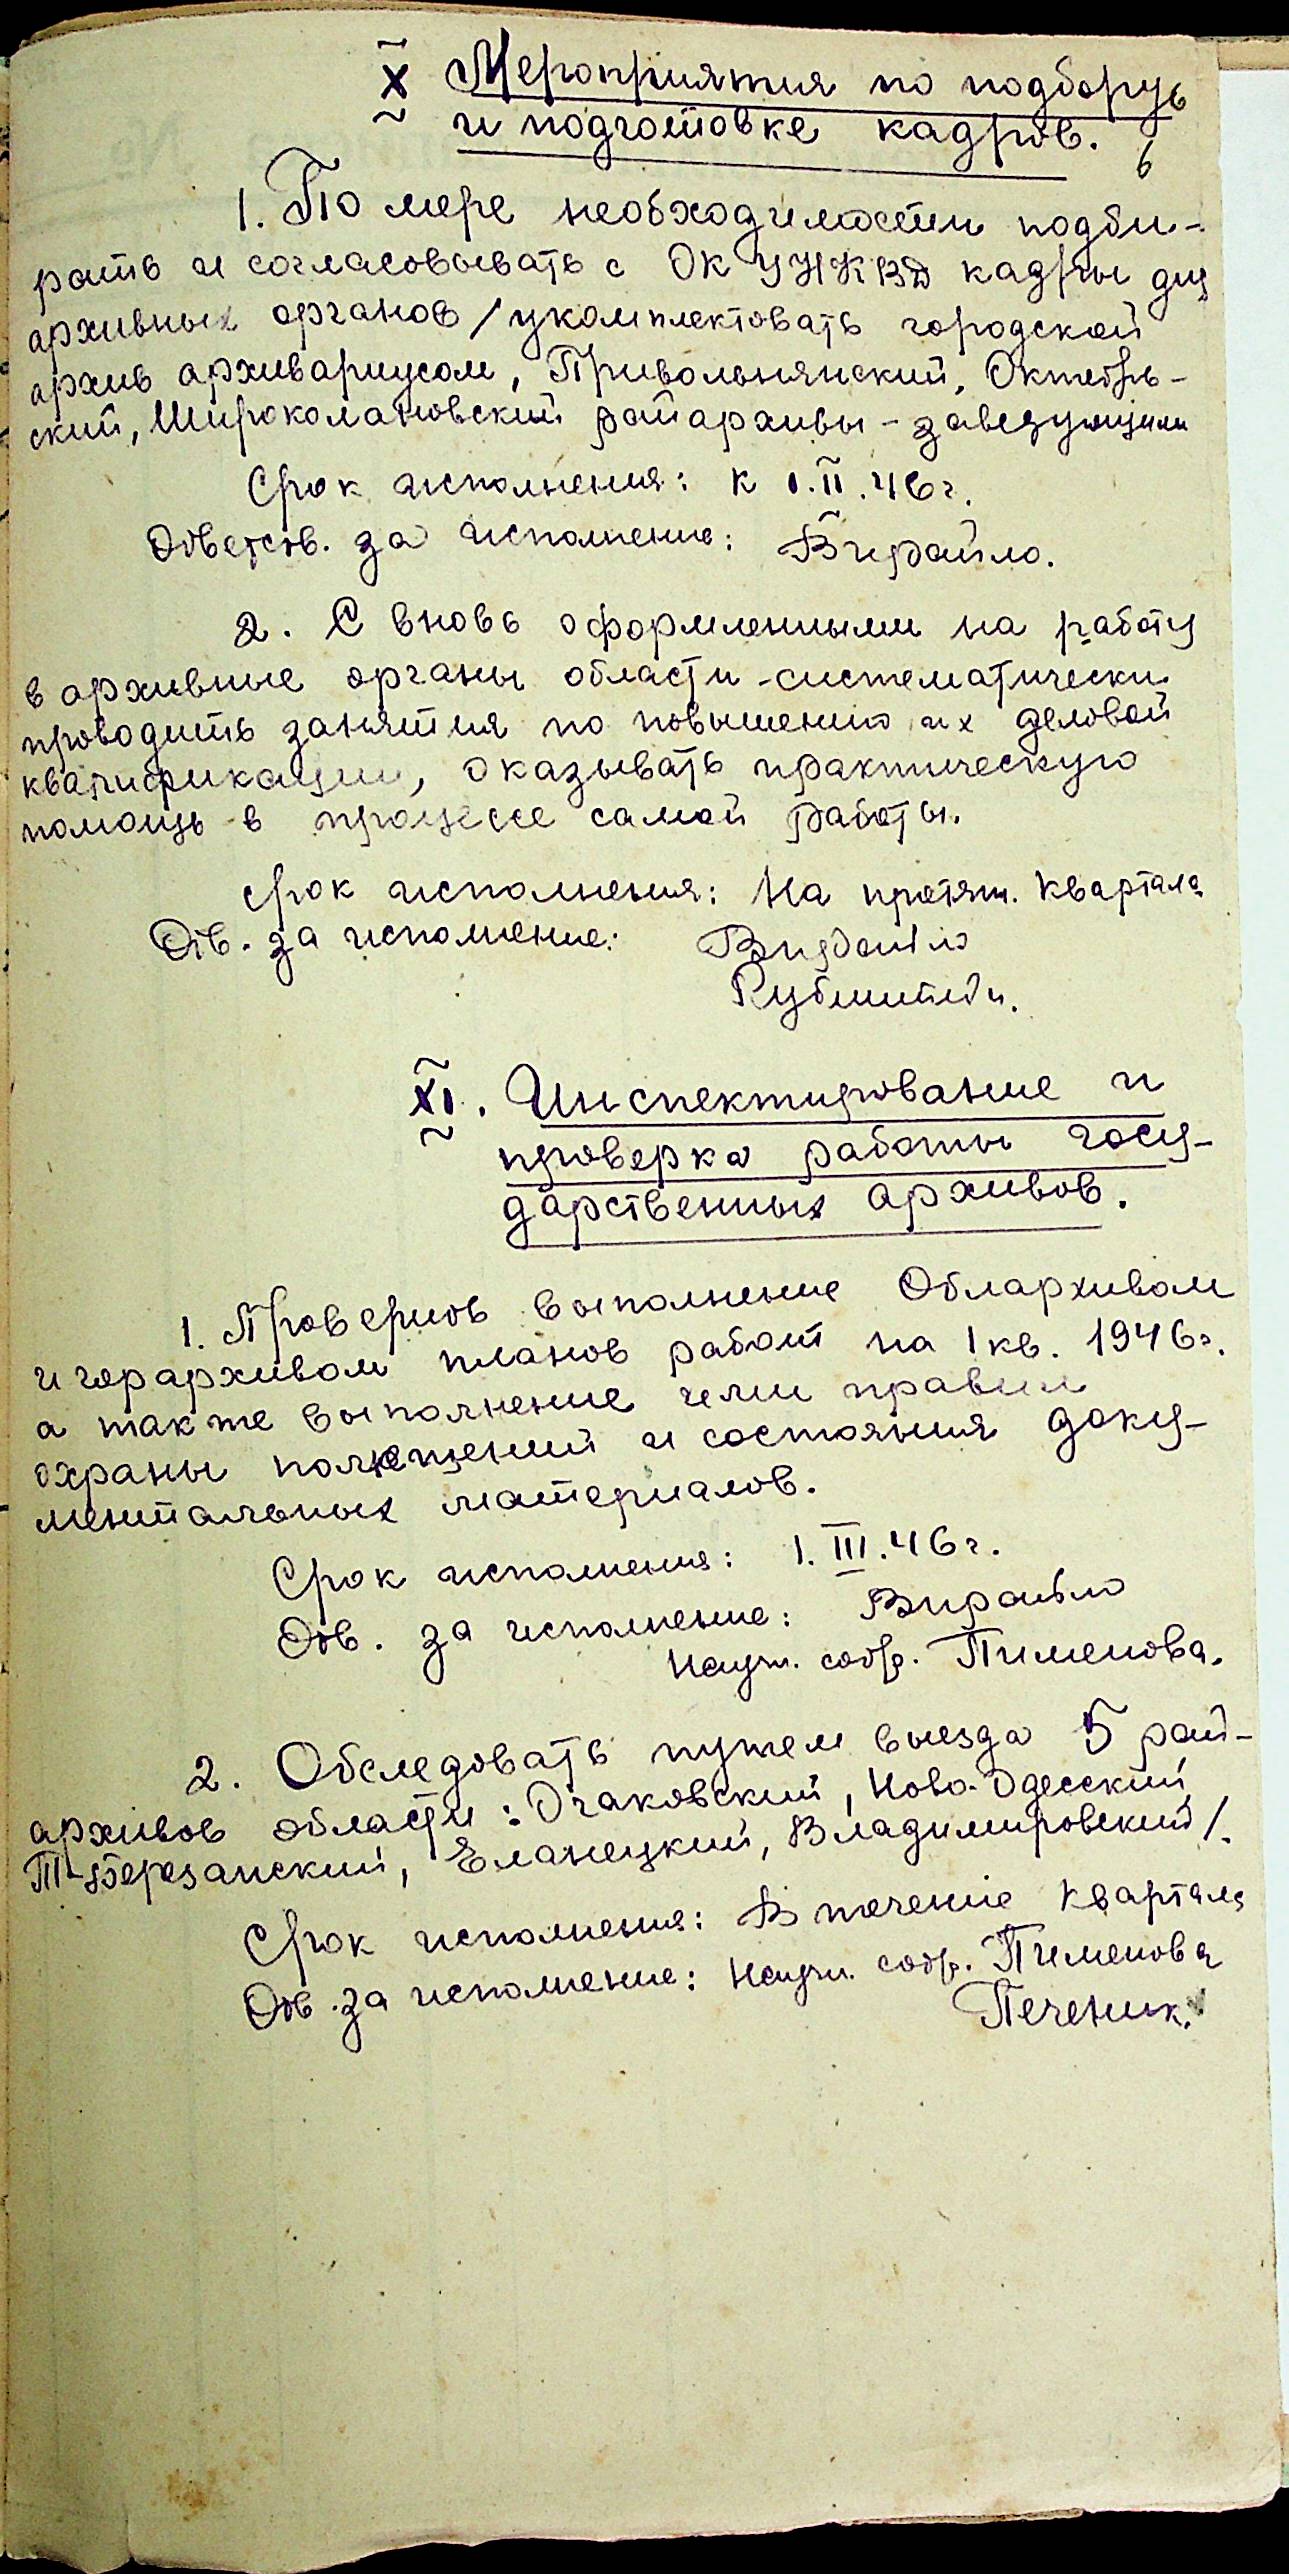 X Мероприятия по подбору
и подготовке кадров.
6
6
1. По мере необходимости подби-
рать и согласовывать с ОК УНКВД кадры для
архивных органов /укомплектовать городской
архив архивариусом, Привольнянский, Октябрь-
ский, Широколановский райархивы - заведующими
Срок исполнения: к 1.II.46 г.
Ответств. за исполнение: Вирайло.
2. С вновь оформленными на работу
в архивные органы области - систематически
проводить занятия по повышению их деловой
квалификации, оказывать практическую
помощь в процессе самой работы.
Срок исполнения: На протяж. квартала
Отв. за исполнение: Вирайло
XI. Инспектирование и
проверка работы госу-
дарственных архивов.
1. Проверить выполнение Облархивом
и горархивом планов работ на 1 кв. 1946 г.
а также выполнение ими правил
охраны помещений и состояния доку-
ментальных материалов.
Срок исполнения: 1.III.46 г.
Отв. за исполнение: Вирайло
Научн. сотр. Пименова.
2. Обследовать путем выезда 5 рай-
архивов области: Очаковский, Ново-Одесский,
Т-Березанский, Еланецкий, Владимировский/.
Срок исполнения: В течение квартала
Отв. за исполнение: Научн. сотр. Пименова
Печеник.